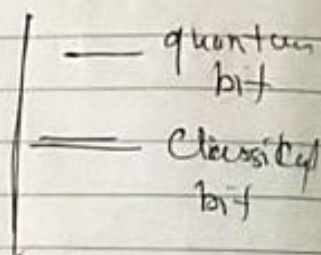 quantum
bit
Classical
bit